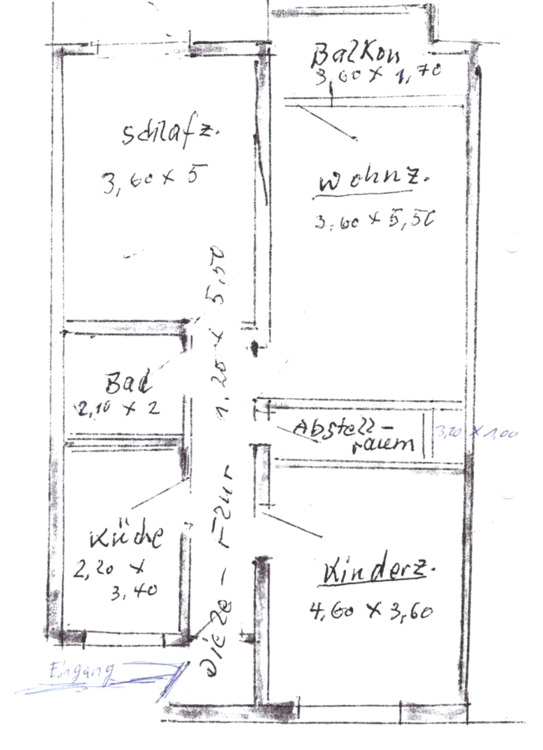 Balkon
3,60 x 1,70
Schlafz.
3,60 x 5
Wohnz.
3.60 x 5,50
Bad
2,10 x 2
Abstell-
raum
3,20 x 1,00
Küche
2,20 x
3,40
Diele - Flur 1.20 x 5,50
Kinderz.
4,60 x 3,60
Eingang